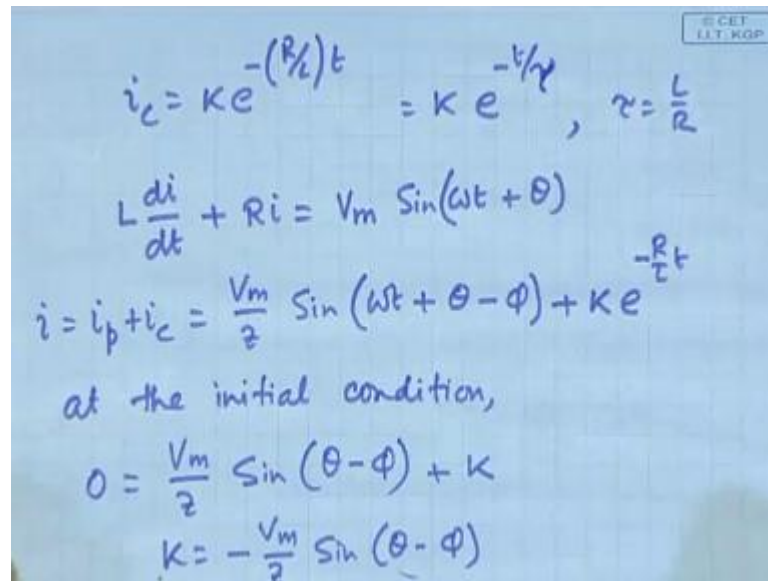 © CET
I.I.T. KGP
i_c = K e^{-(R/L)t} = K e^{-t/τ}, τ = L/R
L di/dt + Ri = Vm Sin(ωt + θ)
i = i_p + i_c = Vm/z Sin (ωt + θ - φ) + K e^{-R/L t}
at the initial condition,
0 = Vm/z Sin (θ - φ) + K
K = - Vm/z Sin (θ - φ)